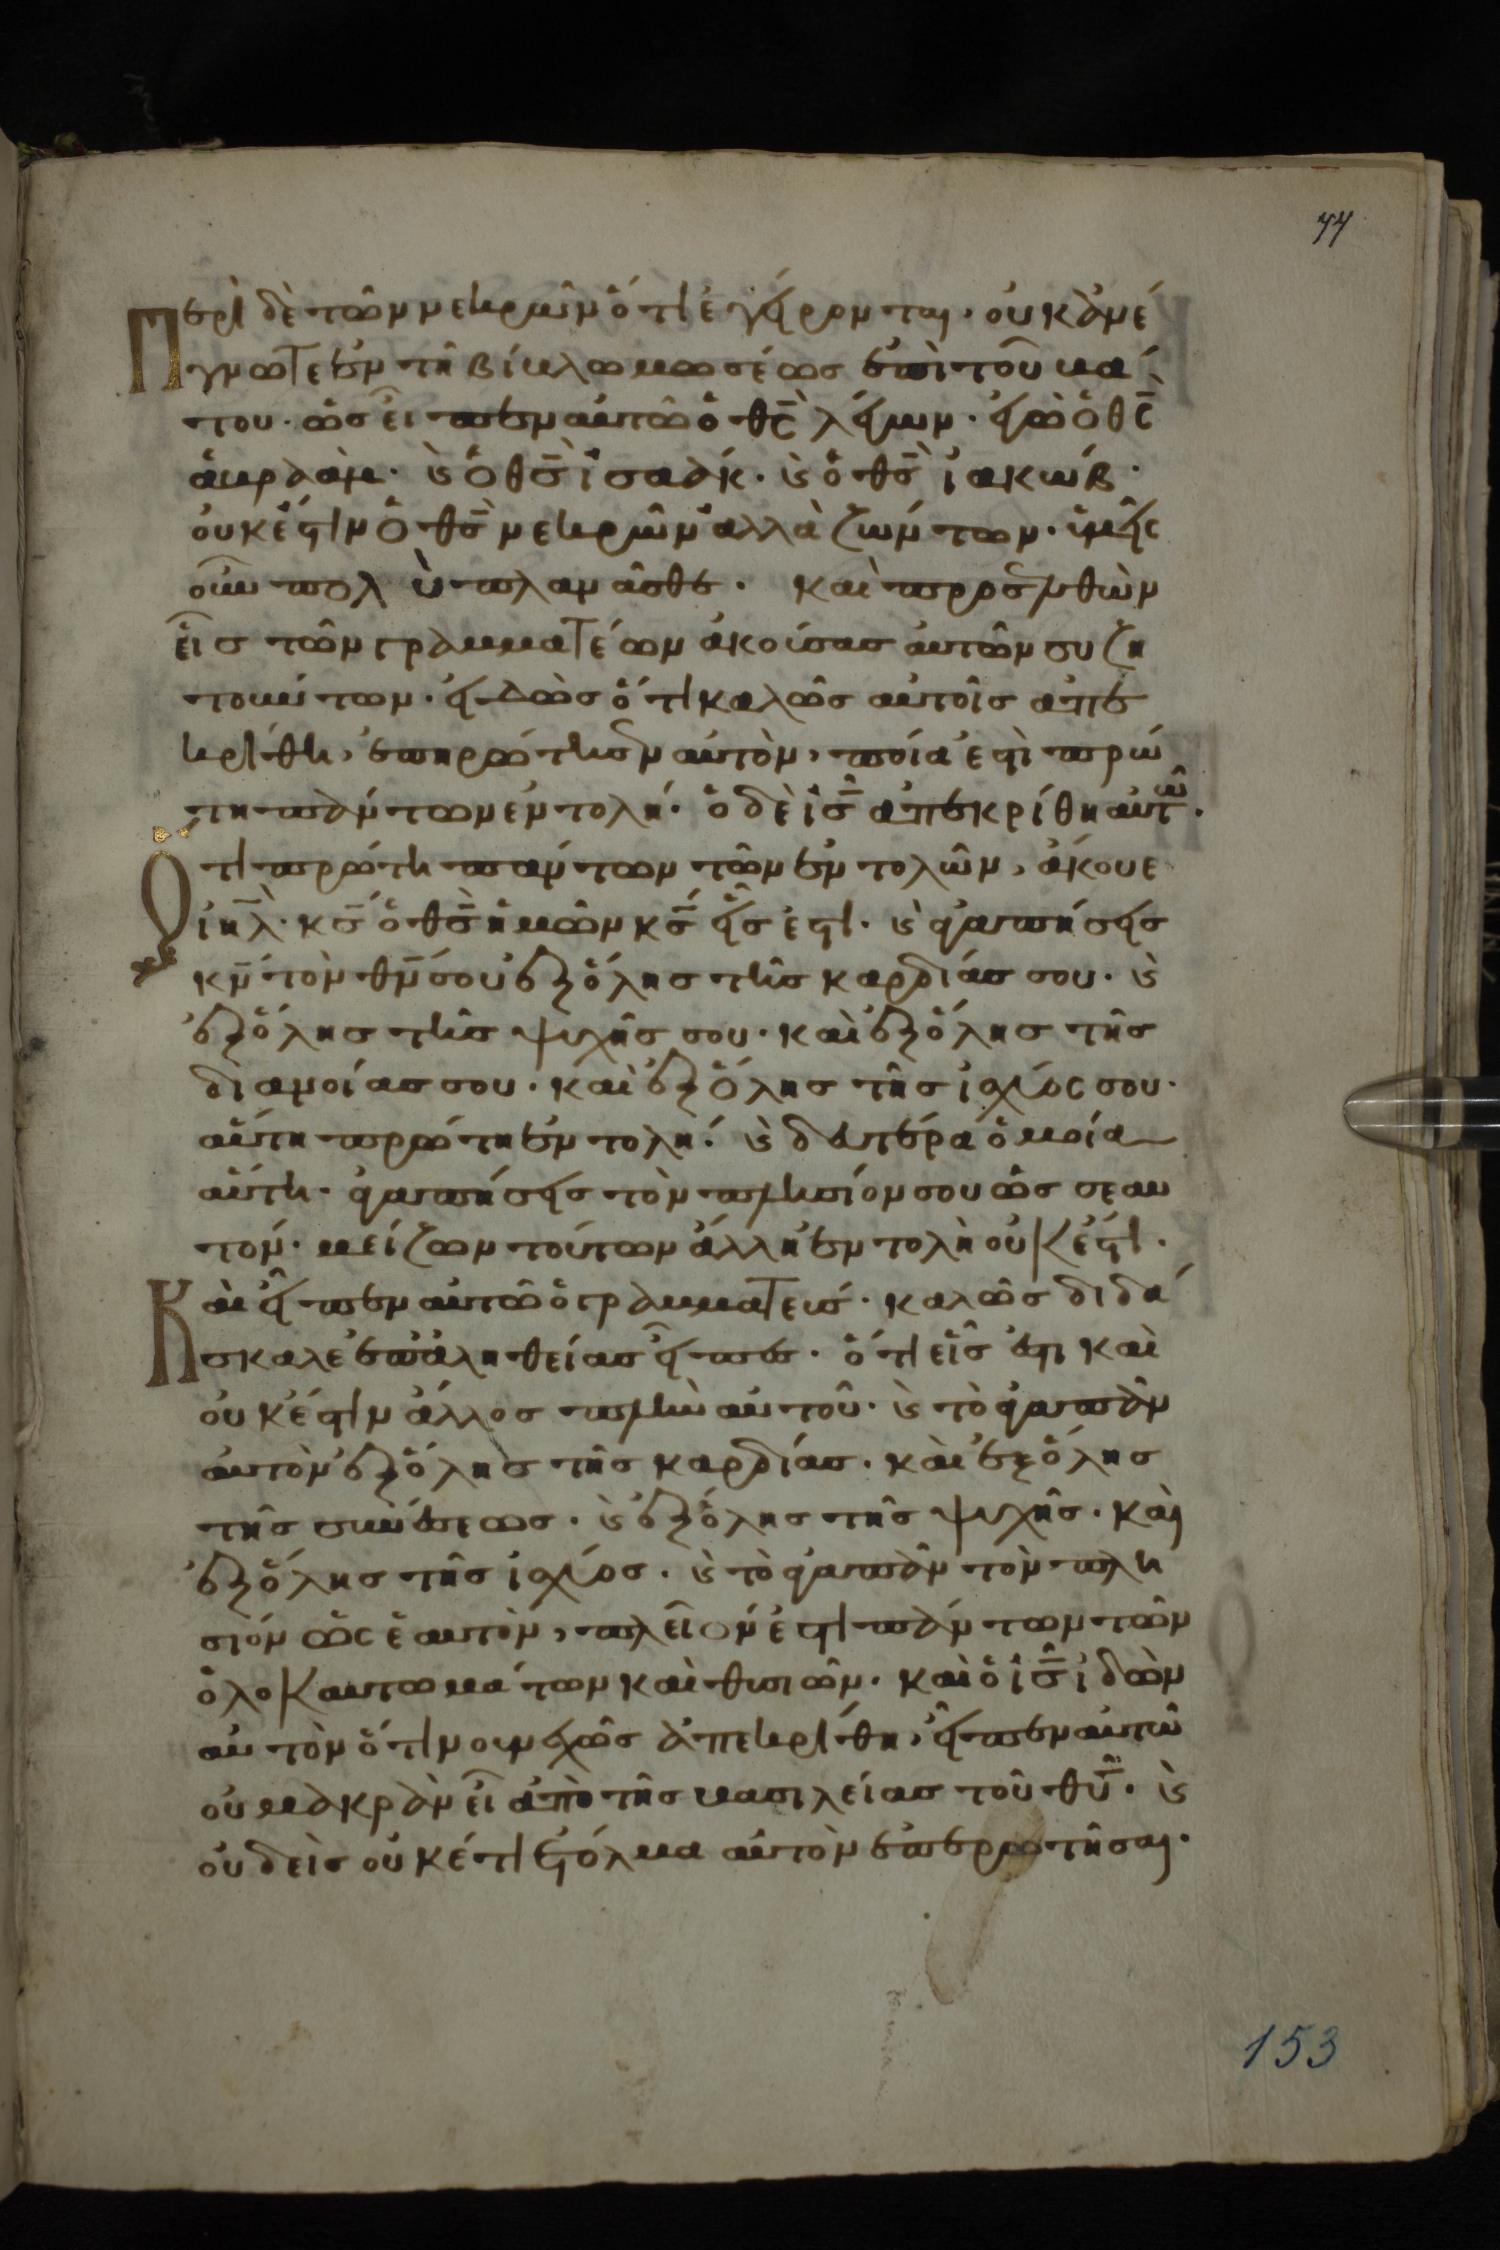 44
Περὶ δὲ τῶν νεκρῶν ὅτι ἐγείρονται. οὐκ ἀνέ
γνωτε ἐν τῆ βίβλω μωσέως ἐπὶ τοῦ βά
του. ὡς εἶπεν αὐτῶ ὁ θ̅ς̅ λέγων. ἐγὼ ὁ θ̅ς̅
ἀβραὰμ. κ̀ ὁ θ̅ς̅ ἰσαάκ. κ̀ ὁ θ̅ς̅ ἰακώβ.
οὐκ ἔστιν ὁ θ̅ς̅ νεκρῶν ἀλλὰ ζώντων. ὑμεῖς
οὖν πολὺ πλανᾶσθε. Καὶ προσελθὼν
εἷς τῶν γραμματέων ἀκούσας αὐτῶν συζη
τούντων. εἰδὼς ὅτι καλῶς αὐτοῖς ἀπε
κρίθη, ἐπηρώτησεν αὐτὸν, ποία ἐστὶ πρώ
τη πάντων ἐντολή. ὁ δὲ ι̅ς̅ ἀπεκρίθη αὐτῶ.
Ὅτι πρώτη πάντων τῶν ἐντολῶν, ἄκουε
ι̅η̅λ̅. κ̅ς̅ ὁ θ̅ς̅ ἡμῶν κ̅ς̅ εἷς ἐστι. κ̀ ἀγαπήσεις
κ̅ν̅ τὸν θ̅ν̅ σου ἐξ ὅλης τῆς καρδίας σου. κ̀
ἐξ ὅλης τῆς ψυχῆς σου. καὶ ἐξ ὅλης τῆς
διανοίας σου. καὶ ἐξ ὅλης τῆς ἰσχύος σου.
αὕτη πρώτη ἐντολή. κ̀ δευτέρα ὁμοία
αὕτη. ἀγαπήσεις τὸν πλησίον σου ὡς σεαυ
τόν. μείζων τούτων ἄλλη ἐντολὴ οὐκ ἔστι.
Καὶ εἶπεν αὐτῶ ὁ γραμματεύς. καλῶς διδά
σκαλε ἐπ' ἀληθείας εἶπες. ὅτι εἷς ἐστι καὶ
οὐκ ἔστιν ἄλλος πλὴν αὐτοῦ. κ̀ τὸ ἀγαπᾶν
αὐτὸν ἐξ ὅλης τῆς καρδίας. καὶ ἐξ ὅλης
τῆς συνέσεως. κ̀ ἐξ ὅλης τῆς ψυχῆς. καὶ
ἐξ ὅλης τῆς ἰσχύος. κ̀ τὸ ἀγαπᾶν τὸν πλη
σιόν ὡς ἑαυτὸν, πλεῖόν ἐστι πάντων τῶν
ὁλοκαυτωμάτων καὶ θυσιῶν. καὶ ὁ ι̅ς̅ ἰδὼν
αὐτὸν ὅτι νουνεχῶς ἀπεκρίθη, εἶπεν αὐτῶ
οὐ μακρὰν εἶ ἀπὸ τῆς βασιλείας τοῦ θ̅υ̅. κ̀
οὐδεὶς οὐκέτι ἐτόλμα αὐτὸν ἐπερωτῆσαι.
153